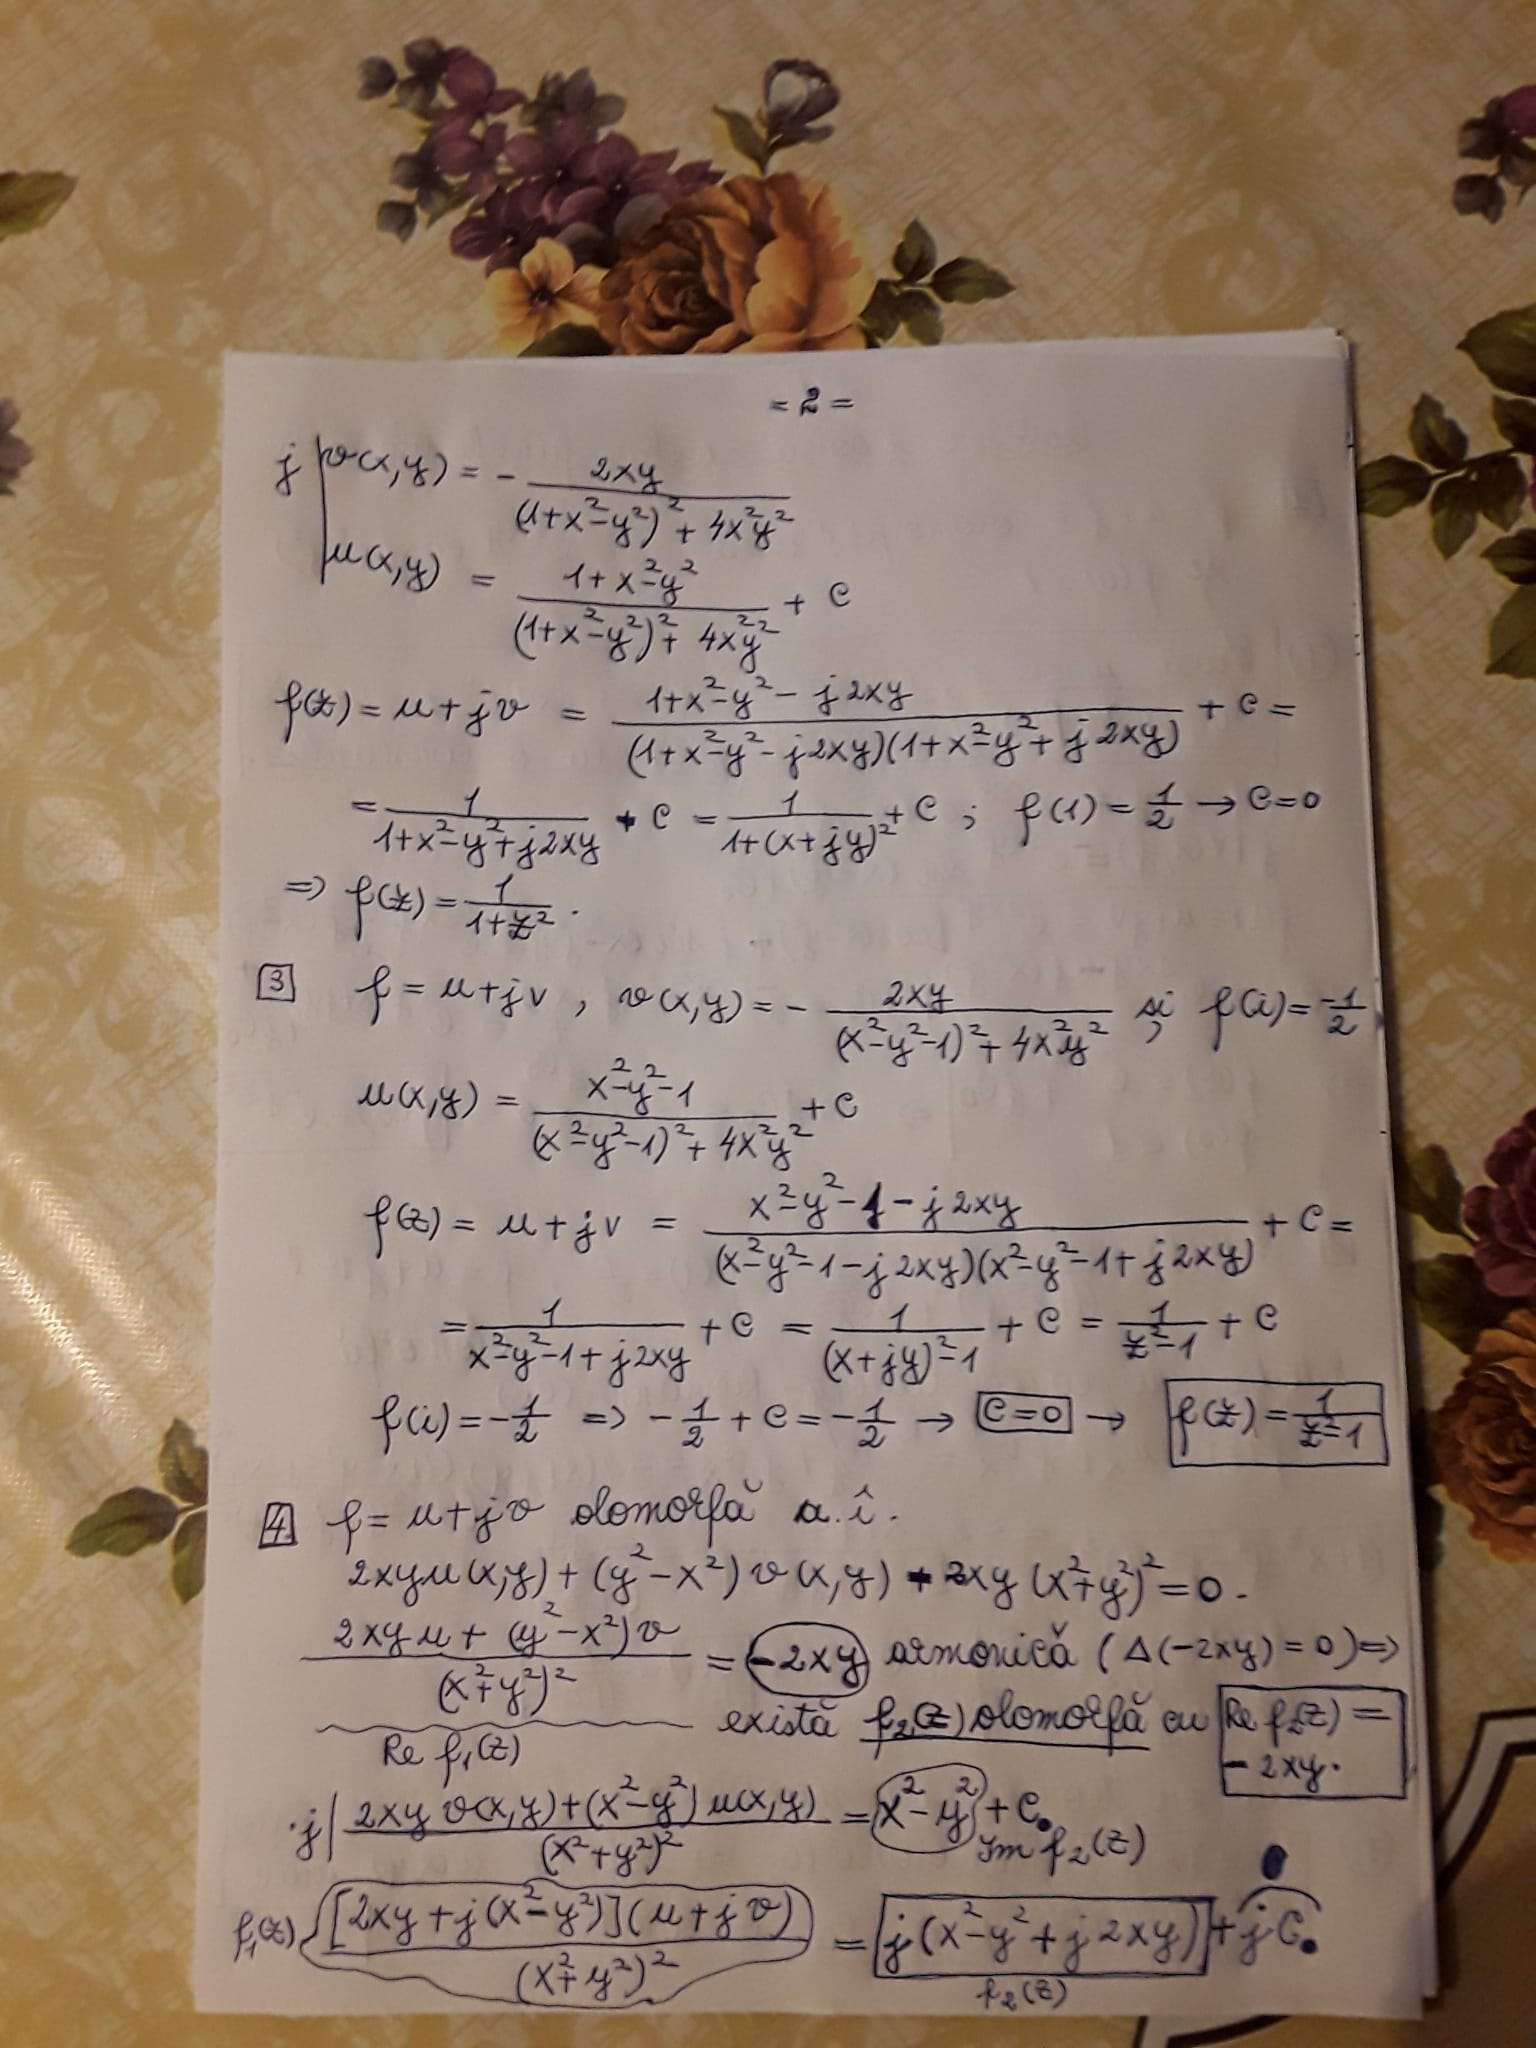 = 2 =
j | v(x,y) = - 2xy / ((1+x²-y²)² + 4x²y²)
u(x,y) = (1+x²-y²) / ((1+x²-y²)² + 4x²y²) + C
f(z) = u + jv = (1+x²-y² - j2xy) / ((1+x²-y²-j2xy)(1+x²-y²+j2xy)) + C =
= 1 / (1+x²-y²+j2xy) + C = 1 / (1+(x+jy)²) + C ; f(1) = 1/2 → C=0
=> f(z) = 1 / (1+z²) .
3 f = u+jv , v(x,y) = - 2xy / ((x²-y²-1)² + 4x²y²) și f(i) = -1/2
u(x,y) = (x²-y²-1) / ((x²-y²-1)² + 4x²y²) + C
f(z) = u + jv = (x²-y²-1-j2xy) / ((x²-y²-1-j2xy)(x²-y²-1+j2xy)) + C =
= 1 / (x²-y²-1+j2xy) + C = 1 / ((x+jy)²-1) + C = 1 / (z²-1) + C
f(i) = -1/2 => -1/2 + C = -1/2 → C=0 → f(z) = 1 / (z²-1)
4. f = u+jv olomorfă a.î.
2xyu(x,y) + (y²-x²) v(x,y) + 2xy (x²+y²)² = 0.
(2xyu + (y²-x²)v) / (x²+y²)² = -2xy armonică (Δ(-2xy) = 0) =>
Re f₁(z) există f₂(z) olomorfă cu Re f₂(z) = -2xy.
·j | (2xy v(x,y) + (x²-y²) u(x,y)) / (x²+y²)² = x²-y² + C.
Im f₂(z)
f₁(z) [2xy+j(x²-y²)](u+jv) / (x²+y²)² = j(x²-y²+j2xy) + jC.
f₂(z)